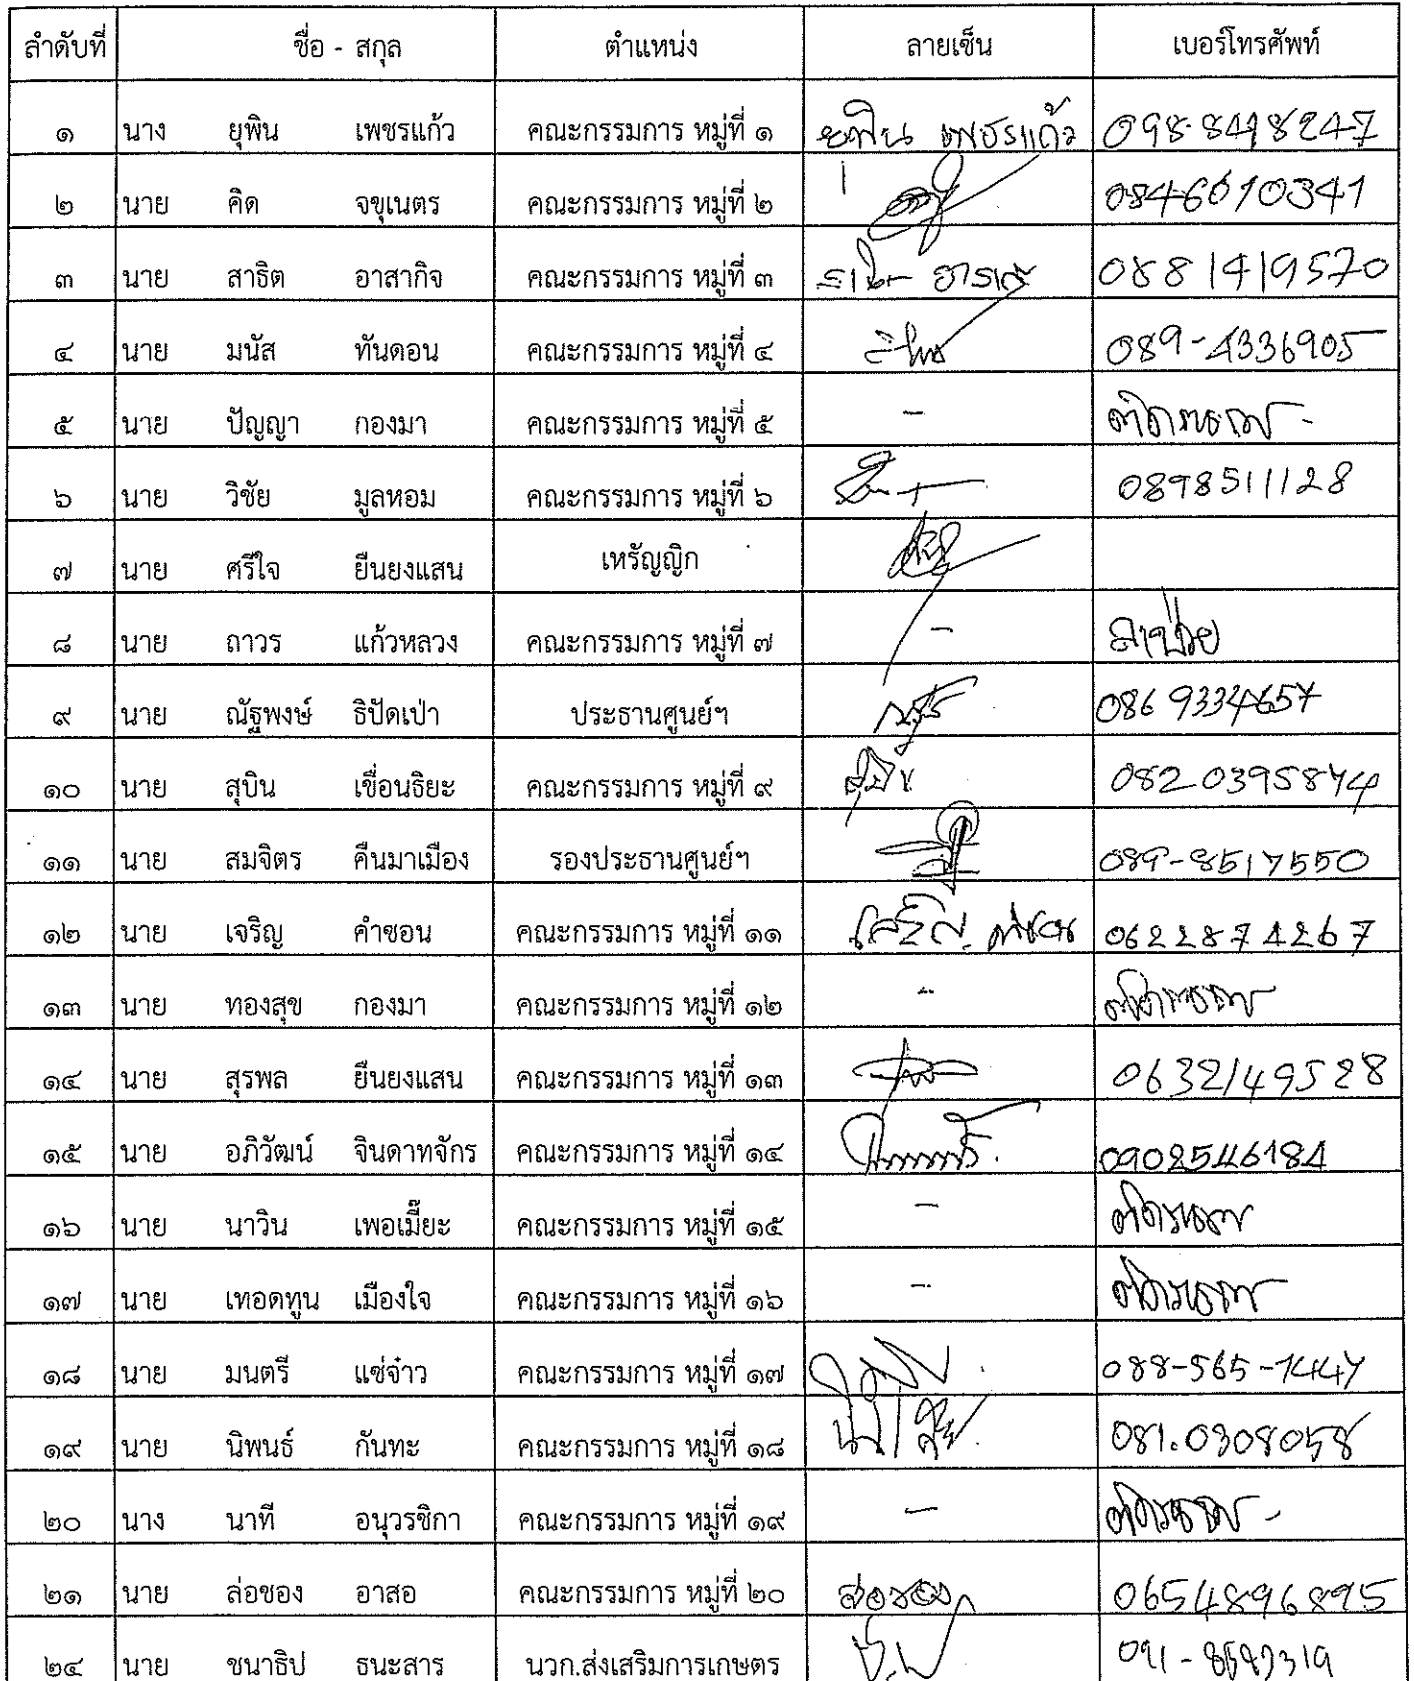 ลำดับที่ ชื่อ - สกุล ตำแหน่ง ลายเซ็น เบอร์โทรศัพท์
๑ นาง ยุพิน เพชรแก้ว คณะกรรมการ หมู่ที่ ๑ ยุพิน เพชรแก้ว 098-8418247
๒ นาย คิด จขุเนตร คณะกรรมการ หมู่ที่ ๒ 0846010341
๓ นาย สาธิต อาสากิจ คณะกรรมการ หมู่ที่ ๓ 0881419570
๔ นาย มนัส ทันดอน คณะกรรมการ หมู่ที่ ๔ 089-4336905
๕ นาย ปัญญา กองมา คณะกรรมการ หมู่ที่ ๕ - ติดภารกิจ -
๖ นาย วิชัย มูลหอม คณะกรรมการ หมู่ที่ ๖ 0898511128
๗ นาย ศรีใจ ยืนยงแสน เหรัญญิก
๘ นาย ถาวร แก้วหลวง คณะกรรมการ หมู่ที่ ๗ - ลาป่วย
๙ นาย ณัฐพงษ์ ธิปัดเป่า ประธานศูนย์ฯ 086 9334657
๑๐ นาย สุบิน เขื่อนธิยะ คณะกรรมการ หมู่ที่ ๙ 082 0395874
๑๑ นาย สมจิตร คืนมาเมือง รองประธานศูนย์ฯ 089-8517550
๑๒ นาย เจริญ คำซอน คณะกรรมการ หมู่ที่ ๑๑ เจริญ คำซอน 0622874267
๑๓ นาย ทองสุข กองมา คณะกรรมการ หมู่ที่ ๑๒ - ติดภารกิจ
๑๔ นาย สุรพล ยืนยงแสน คณะกรรมการ หมู่ที่ ๑๓ 0632149528
๑๕ นาย อภิวัฒน์ จินดาทจักร คณะกรรมการ หมู่ที่ ๑๔ 0902546184
๑๖ นาย นาวิน เพอเมี๊ยะ คณะกรรมการ หมู่ที่ ๑๕ - ติดภารกิจ
๑๗ นาย เทอดทูน เมืองใจ คณะกรรมการ หมู่ที่ ๑๖ - ติดภารกิจ
๑๘ นาย มนตรี แซ่จ๋าว คณะกรรมการ หมู่ที่ ๑๗ 088-565-1447
๑๙ นาย นิพนธ์ กันทะ คณะกรรมการ หมู่ที่ ๑๘ 081.0308058
๒๐ นาง นาที อนุวรชิกา คณะกรรมการ หมู่ที่ ๑๙ - ติดภารกิจ -
๒๑ นาย ล่อซอง อาสอ คณะกรรมการ หมู่ที่ ๒๐ ล่อซอง 0654896895
๒๔ นาย ชนาธิป ธนะสาร นวก.ส่งเสริมการเกษตร